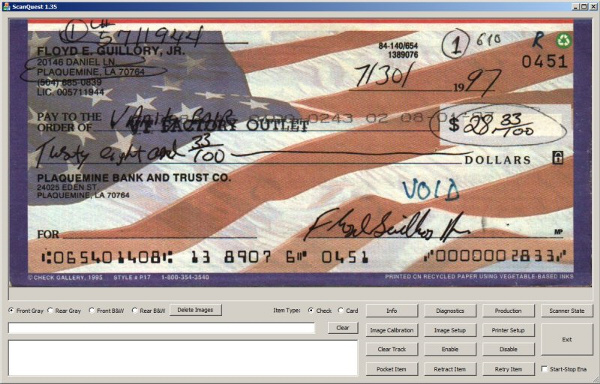 ScanQuest 1.35
① L# 5711944
FLOYD E. GUILLORY, JR.
20146 DANIEL LN
PLAQUEMINE, LA 70764
(504) 685-0839
LIC. 005711944
84-140/654
1389076
① 610
R
0451
7/30/ 1997
PAY TO THE
ORDER OF
VT FACTORY OUTLET
0243 02 08-01
$ 28 33/100
Twenty eight and 33/100
DOLLARS
PLAQUEMINE BANK AND TRUST CO.
24025 EDEN ST
PLAQUEMINE, LA 70764
VOID
FOR
MP
⑆065401408⑆ 13 8907 6⑈ 0451 ⑈0000002833⑈
© CHECK GALLERY, 1995 STYLE # P17 1-800-354-3540
PRINTED ON RECYCLED PAPER USING VEGETABLE-BASED INKS
Front Gray Rear Gray Front B&W Rear B&W Delete Images Item Type: Check Card
Clear
Info Diagnostics Production Scanner State
Image Calibration Image Setup Printer Setup
Exit
Clear Track Enable Disable
Pocket Item Retract Item Retry Item Start-Stop Ena